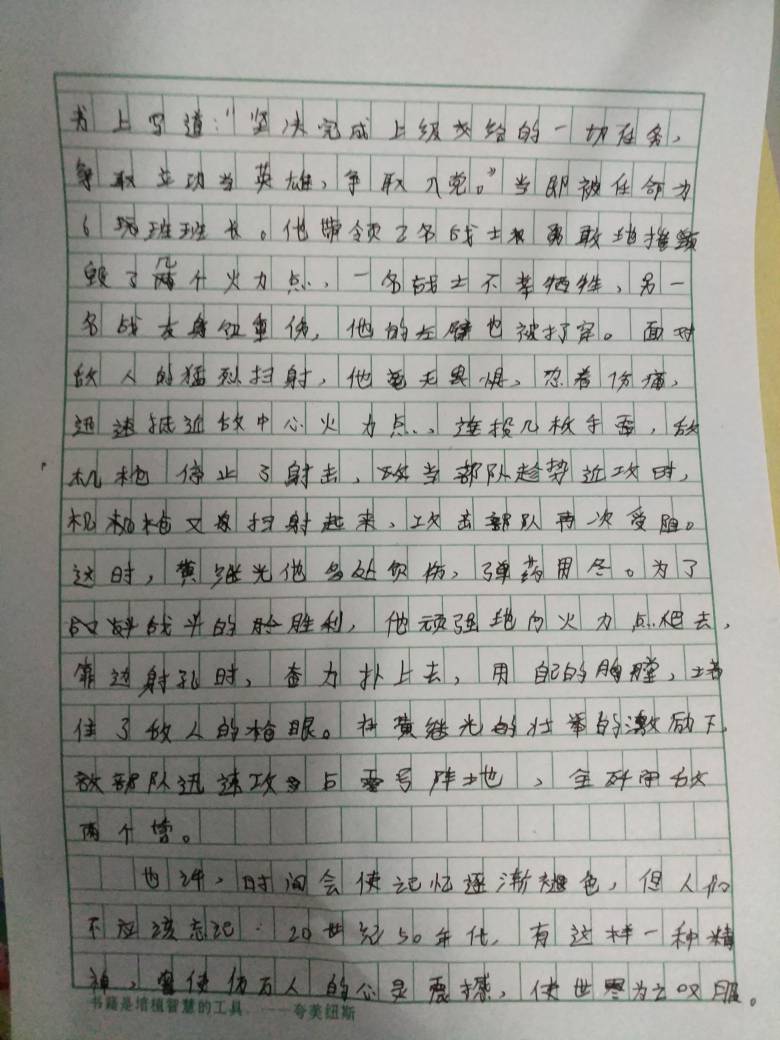 书上写道:"坚决完成上级交给的一切任务,
争取立功当英雄,争取入党。"当即被任命为
6班班长。他带领2名战士勇敢地摧
毁了几个火力点,一名战士不幸牺牲,另一
名战友身负重伤,他的左臂也被打穿。面对
敌人的猛烈扫射,他毫无畏惧,忍着伤痛,
迅速抵近敌中心火力点,连投几枚手雷,敌
机枪停止了射击,当部队趁势近攻时,
机枪又扫射起来,攻击部队再次受阻。
这时,黄继光他多处负伤,弹药用尽。为了
战斗的胜利,他顽强地向火力点爬去,
靠近射孔时,奋力扑上去,用自己的胸膛,堵
住了敌人的枪眼。在黄继光的壮举的激励下,
部队迅速攻占零号阵地,全歼敌
两个营。
也许,时间会使记忆逐渐褪色,但人们
不应该忘记:20世纪50年代,有这样一种精
神,曾使亿万人的心灵震撼,使世界为之叹服。
书籍是培植智慧的工具。——夸美纽斯